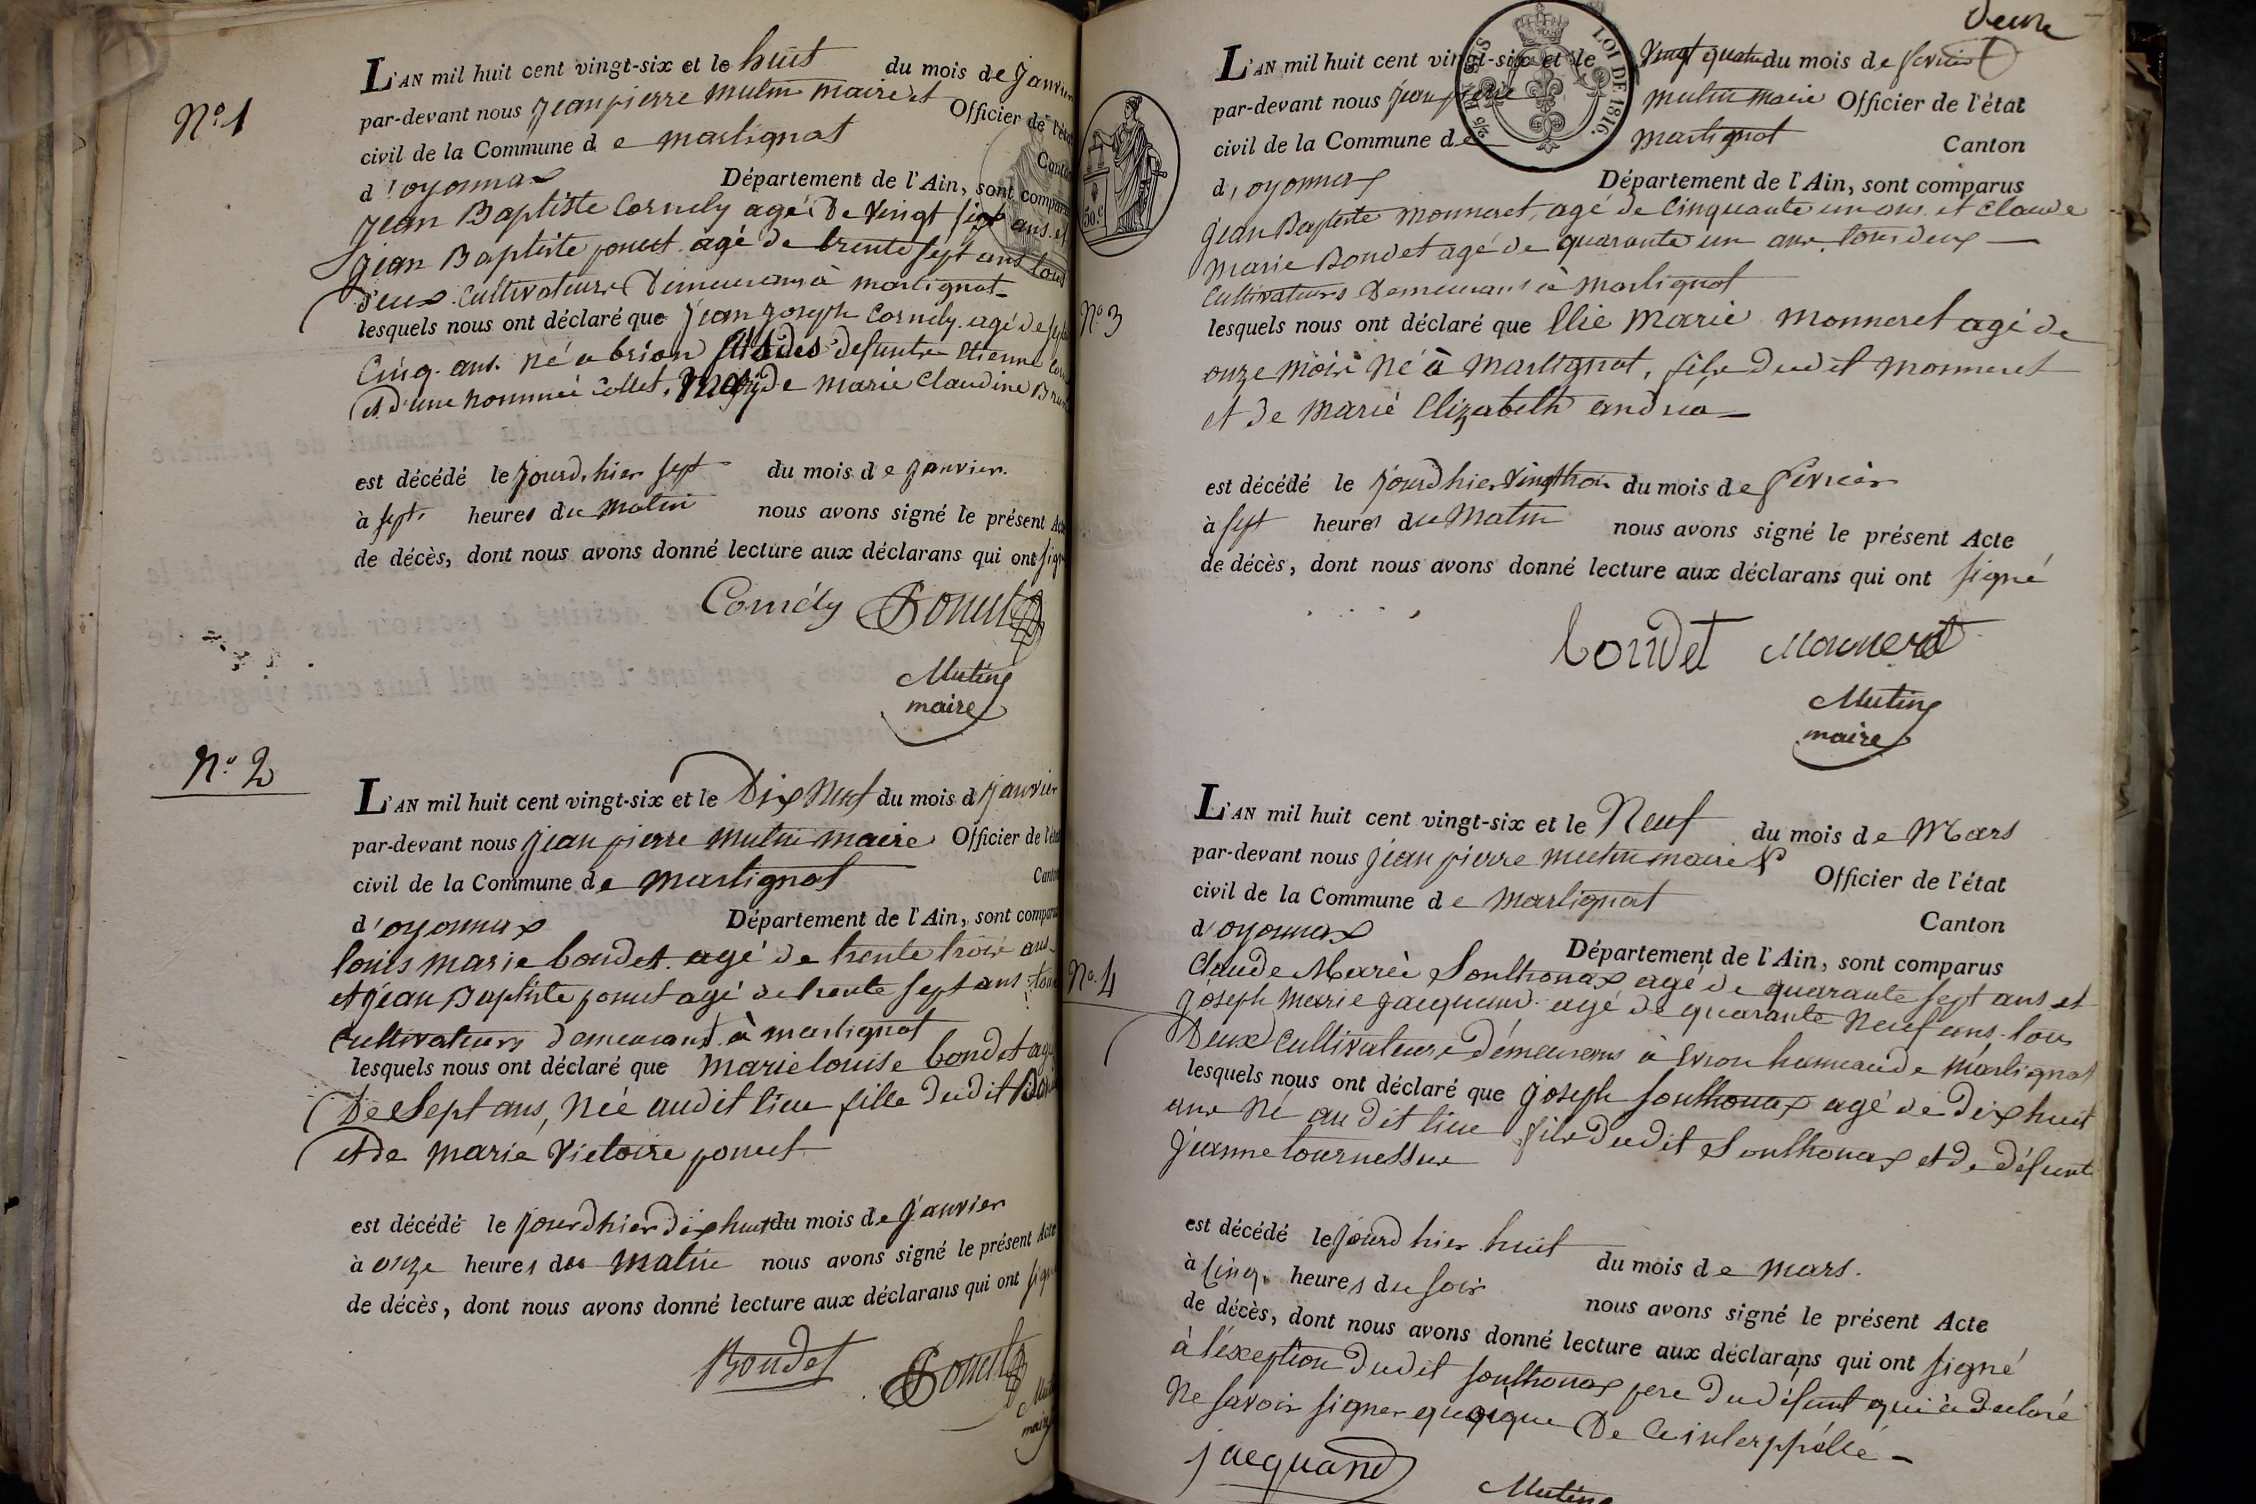 N.o 1
L'AN mil huit cent vingt-six et le huit du mois de janvier
par-devant nous jean pierre mutin maire et Officier de l'état
civil de la Commune de martignat Canton
d'oyonnax Département de l'Ain, sont comparus
jean Baptiste Cornely agé De vingt six ans et
jean Baptiste poncet agé de trente sept ans tous
deux Cultivateurs Demeurans à martignat
lesquels nous ont déclaré que jean joseph Cornely agé de
Cinq ans né a brion fils des defunts Etienne
et d'une nommée Collet, Mary de marie Claudine
est décédé le jourd'hier sept du mois de janvier
à sept heures du matin nous avons signé le présent Acte
de décès, dont nous avons donné lecture aux déclarans qui ont signé
Cornély Poncet
Mutin
maire
N.o 2
L'AN mil huit cent vingt-six et le Dix Neuf du mois d janvier
par-devant nous jean pierre mutin maire Officier de l'état
civil de la Commune de martignat Canton
d'oyonnax Département de l'Ain, sont comparus
louis marie bondet agé de trente trois ans
et jean Baptiste poncet agé de trente sept ans tous
Cultivateurs demeurant à martignat
lesquels nous ont déclaré que marie louise bondet agé
De Sept ans, Née audit lieu fille dudit Bondet
et de marie Victoire poncet
est décédé le jourd hier dix huit du mois de janvier
à onze heures du matin nous avons signé le présent Acte
de décès, dont nous avons donné lecture aux déclarans qui ont signé
Bondet Poncet
Mutin
maire
deux
TIMBRE
LOI DE 1816.
50c
L'AN mil huit cent vingt-six et le Vingt quatre du mois de fevrier
par-devant nous jean pierre mutin maire Officier de l'état
civil de la Commune de martignat Canton
d'oyonnax Département de l'Ain, sont comparus
jean Baptiste monneret, agé de Cinquante un ans et Claude
marie Bondet agé de quarante un ans tous deux
Cultivateurs Demeurans à Martignat
N.o 3
lesquels nous ont déclaré que Elie Marie monneret agé de
onze mois né à Martignat, fils dudit monneret
et de marie Elizabeth andréa
est décédé le jourd hier Vingt trois du mois de fevrier
à sept heures du Matin nous avons signé le présent Acte
de décès, dont nous avons donné lecture aux déclarans qui ont signé
bondet Monneret
Mutin
maire
L'AN mil huit cent vingt-six et le Neuf du mois de Mars
par-devant nous jean pierre mutin maire & Officier de l'état
civil de la Commune de martignat Canton
d'oyonnax Département de l'Ain, sont comparus
N.o 4
Claude Marie Sonthonax agé de quarante sept ans et
joseph marie jacquand agé de quarante Neuf ans, tous
Deux Cultivateurs démeurans à Evron hameau de Martignat
lesquels nous ont déclaré que joseph sonthonax agé de Dix huit
ans né au dit lieu fils dudit Sonthonax et de défunte
jeanne tournessux
est décédé le jourd hier huit du mois de mars.
à Cinq heures du soir nous avons signé le présent Acte
de décès, dont nous avons donné lecture aux déclarans qui ont signé
à l'exeption dudit sonthonax pere du défunt qui a declaré
Ne savoir signer quoique De Ce interppéllé
jacquand
Mutin